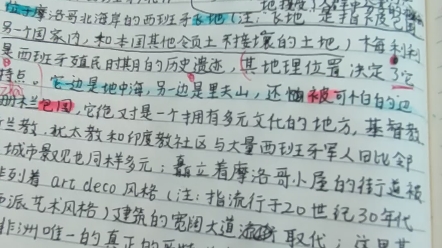 地接壤
位于摩洛哥北海岸的西班牙飞地(注:飞地 是指
另一个国家内,和本国其他领土不接壤的土地)梅利利
是西班牙殖民时期的历史遗迹,其地理位置决定了它
特点 它一边是地中海,另一边是里夫山,还被可怕的边
兰包围,它绝对是一个拥有多元文化的地方,基督教
兰教,犹太教和印度教社区与大量西班牙军人毗邻
城市景观也同样多元:矗立着摩洛哥小屋的街道被
列着 art deco 风格(注:指流行于20世纪30年代
派艺术风格)建筑的宽阔大道 取代,这里某
非洲唯一的真正的